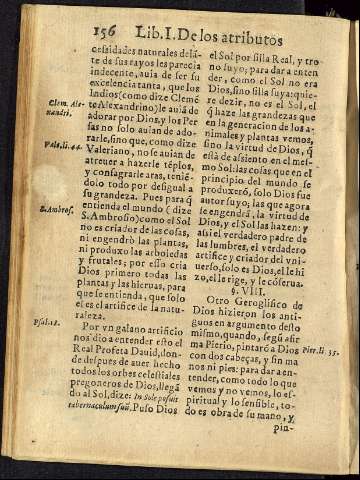 156 Lib. I. De los atributos
cessidades naturales delã-
te de sus rayos les parecia
indecente, auia de ser su
excelencia tanta, que los
Indios (como dize Clemẽ
te Alexandrino) le auiã de
adorar por Dios, y los Per
sas no solo auian de ado-
rarle, sino que, como dize
Valeriano, no se auian de
atreuer a hazerle tẽplos,
y consagrarle aras, teniẽ-
dolo todo por desigual a
su grandeza. Pues para q̃
entienda el mundo (dize
S. Ambrosio) como el Sol
no es criador de las cosas,
ni engendrò las plantas,
ni produxo las arboledas
y frutales; por esso cria
Dios primero todas las
plantas y las hieruas, para
que se entienda, que solo
el es artifice de la natu-
raleza.
Por vn galano artificio
nos dio a entender esto el
Real Profeta Dauid, don-
de despues de auer hecho
todos los orbes celestiales
pregoneros de Dios, llegã
do al Sol, dize: In Sole posuit
tabernaculum suũ. Puso Dios
Clem. Ale-
xandri.
Pale. li. 44.
S. Ambros.
Psal. 18.
el Sol por silla Real, y tro
no suyo; para dar a enten
der, como el Sol no era
Dios, sino silla suya: quie-
re dezir, no es el Sol, el
q̃ haze las grandezas que
en la generacion de los a-
nimales y plantas vemos,
sino la virtud de Dios, q̃
està de assiento en el mes-
mo Sol: las cosas que en el
principio del mundo se
produxerõ, solo Dios fue
autor suyo; las que agora
se engendrã, la virtud de
Dios, y el Sol las hazen: y
assi el verdadero padre de
las lumbres, el verdadero
artifice y criador del vni-
uerso, solo es Dios, el le hi
zo, el le rige, y le cõserua.
§. VIII.
Otro Geroglifico de
Dios hizieron los anti-
guos en argumento desto
mismo, quando, segũ afir
ma Pierio, pintarõ a Dios
con dos cabeças, y sin ma
nos ni pies: para dar a en-
tender, como todo lo que
vemos y no vemos, lo es-
piritual y lo sensible, to-
do es obra de su mano, y
pin-
Pier. li. 35.